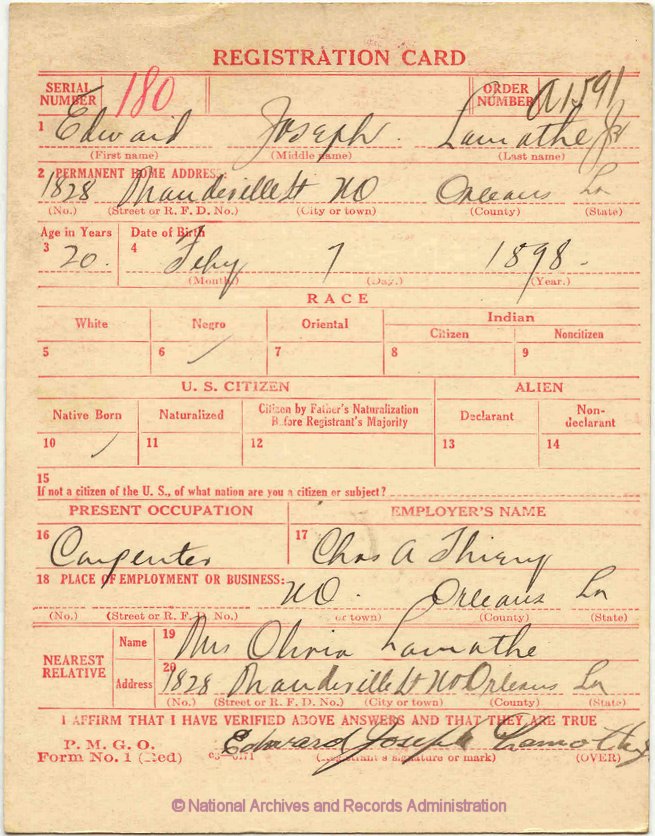 REGISTRATION CARD
SERIAL NUMBER 180 ORDER NUMBER A1591
1 Edward Joseph Lamothe Jr
(First name) (Middle name) (Last name)
2 PERMANENT HOME ADDRESS:
1828 Mandeville St NO Orleans La
(No.) (Street or R. F. D. No.) (City or town) (County) (State)
Age in Years Date of Birth
3 20. 4 Feby 7 1898.
(Month.) (Day.) (Year.)
RACE
White Negro Oriental Indian
Citizen Noncitizen
5 6 / 7 8 9
U. S. CITIZEN ALIEN
Native Born Naturalized Citizen by Father's Naturalization Before Registrant's Majority Declarant Non-declarant
10 / 11 12 13 14
15
If not a citizen of the U. S., of what nation are you a citizen or subject?
PRESENT OCCUPATION EMPLOYER'S NAME
16 Carpenter 17 Chas A Thiery
18 PLACE OF EMPLOYMENT OR BUSINESS:
NO. Orleans La
(No.) (Street or R. F. D. No.) or town) (County) (State)
NEAREST RELATIVE
Name 19 Mrs Olivia Lamothe
Address 20 1828 Mandeville St NO Orleans La
(No.) (Street or R. F. D. No.) (City or town) (County) (State)
I AFFIRM THAT I HAVE VERIFIED ABOVE ANSWERS AND THAT THEY ARE TRUE
P. M. G. O.
Form No. 1 (Red) Edward Joseph Lamothe Jr
(Registrant's signature or mark) (OVER)
© National Archives and Records Administration